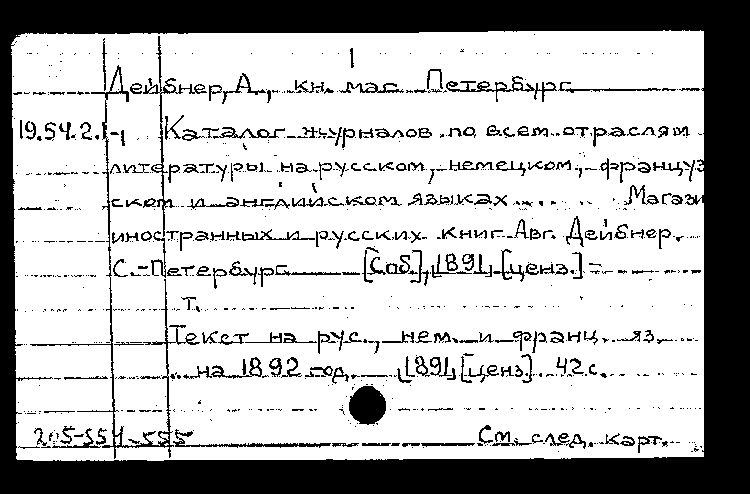 Дейбнер, А., кн. маг. Петербург.
19.54.2.1-, Каталог журналов по всем отраслям
литературы на русском, немецком, француз
ском и английском языках..... Магази
иностранных и русских книг Авг. Дейбнер.
С.-Петербург. [Спб.], 1891, [ценз.] -
т.
Текст на рус., нем. и франц. яз.
... на 1892 год. 1891, [ценз]. 42 с.
205-554-555 См. след. карт.